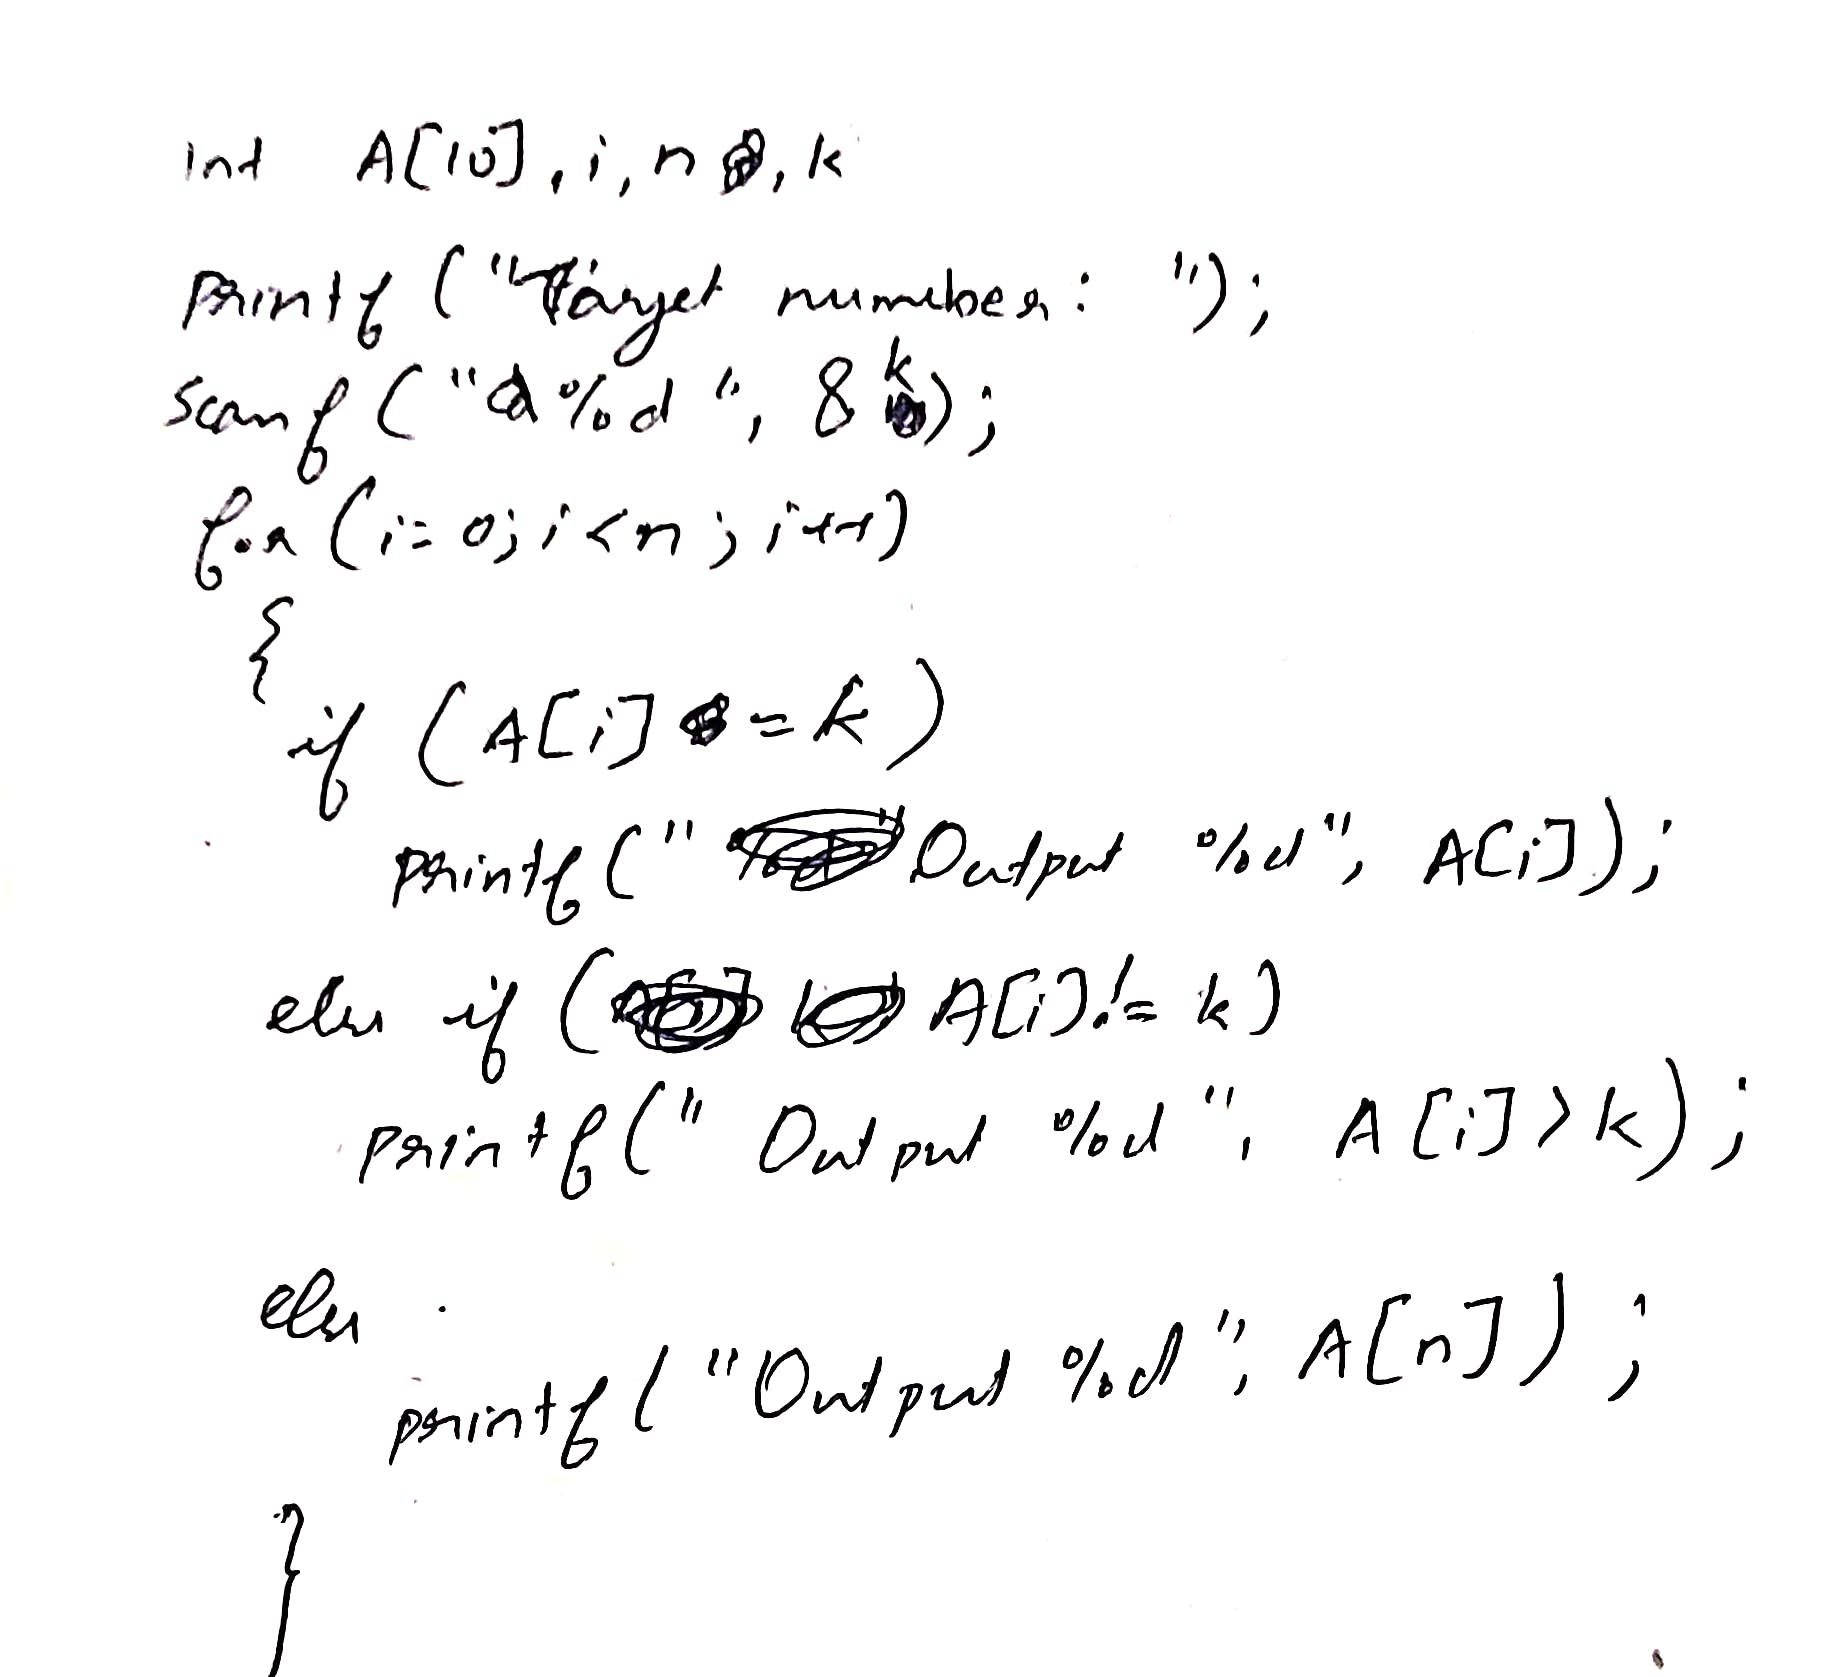 int A[10], i, n, k
printf ("Target number: ");
scanf ("%d", &k);
for (i=0; i<n; i++)
{
if (A[i] = k)
printf (" Output %d", A[i]);
else if (A[i] != k)
printf (" Output %d", A[i]>k);
else
printf ("Output %d", A[n]);
}